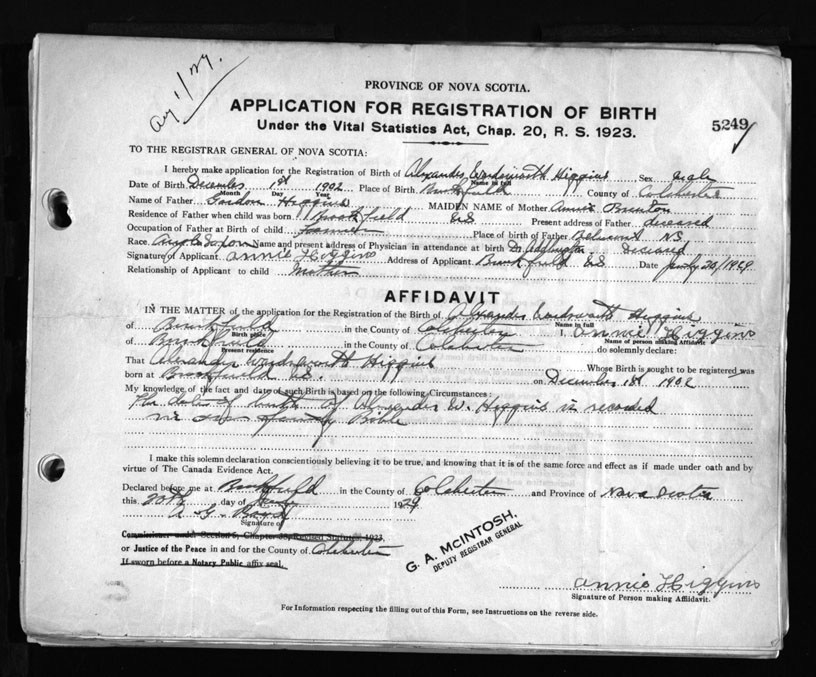 Aug 1/29.
PROVINCE OF NOVA SCOTIA.
APPLICATION FOR REGISTRATION OF BIRTH
Under the Vital Statistics Act, Chap. 20, R. S. 1923.
5249
TO THE REGISTRAR GENERAL OF NOVA SCOTIA:
I hereby make application for the Registration of Birth of Alexander Wordsworth Higgins Sex male
Name in full
Date of Birth December 1st 1902 Place of Birth Brookfield County of Colchester
Month Day Year
Name of Father Gordon Higgins MAIDEN NAME of Mother Annie Brenton
Residence of Father when child was born Brookfield N.S. Present address of Father deceased
Occupation of Father at Birth of child Farmer Place of birth of Father NS
Race Anglo Saxon Name and present address of Physician in attendance at birth Dr Deceased
Signature of Applicant Annie Higgins Address of Applicant Brookfield NS Date July 20/1929
Relationship of Applicant to child Mother
AFFIDAVIT
IN THE MATTER of the application for the Registration of the Birth of Alexander Wordsworth Higgins
Name in full
of Brookfield in the County of Colchester I, Annie Higgins
Birth place Name of person making Affidavit
of Brookfield in the County of Colchester do solemnly declare:
Present residence
That Alexander Wordsworth Higgins Whose Birth is sought to be registered was
born at Brookfield N.S. on December 1st 1902
My knowledge of the fact and date of such Birth is based on the following Circumstances:
The date of birth of Alexander W. Higgins is recorded
in the family Bible
I make this solemn declaration conscientiously believing it to be true, and knowing that it is of the same force and effect as if made under oath and by
virtue of The Canada Evidence Act.
Declared before me at Brookfield in the County of Colchester and Province of Nova Scotia
this 20th day of July 1929
Signature of
Commissioner under Section 6, Chapter 38, Revised Statutes, 1923,
or Justice of the Peace in and for the County of Colchester
If sworn before a Notary Public affix seal.
G. A. McINTOSH,
DEPUTY REGISTRAR GENERAL
Annie Higgins
Signature of Person making Affidavit.
For Information respecting the filling out of this Form, see Instructions on the reverse side.